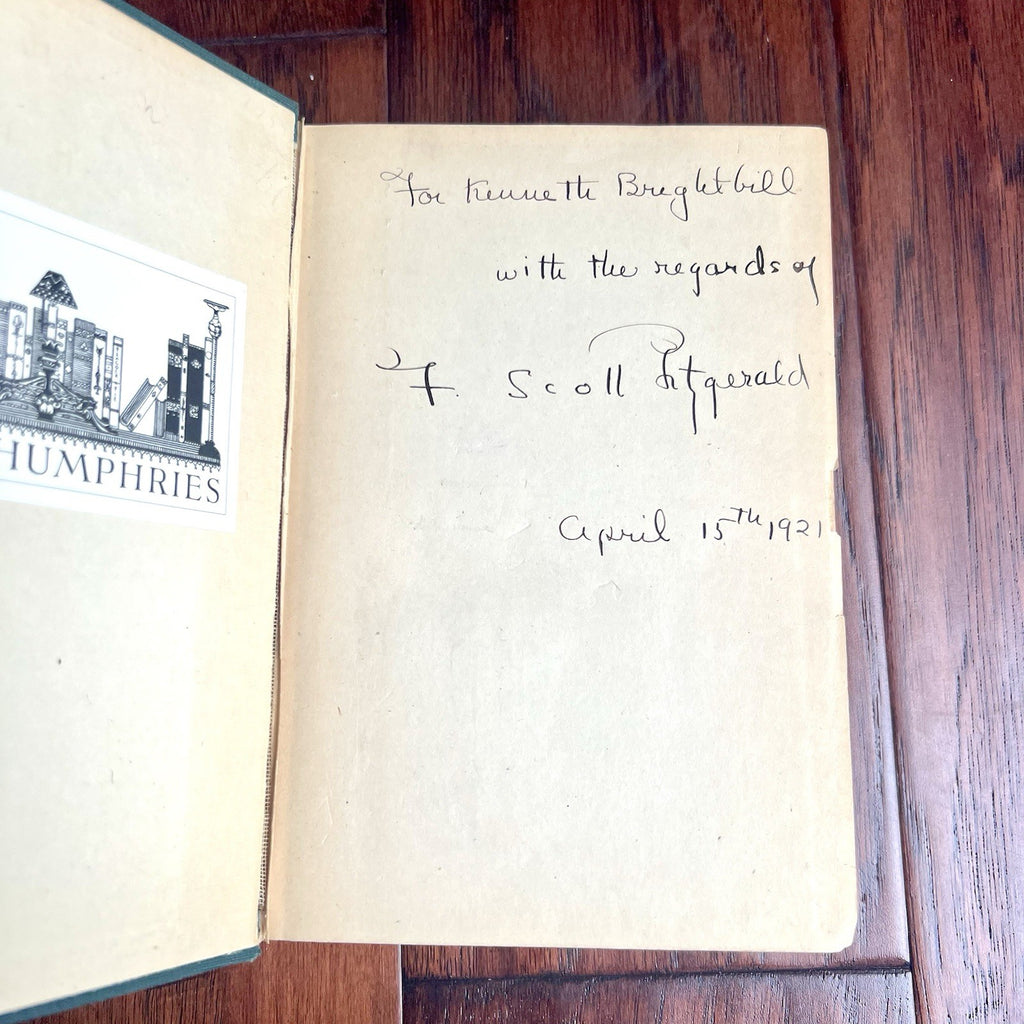 HUMPHRIES
For Kenneth Breghtbill
with the regards of
F. Scott Fitzgerald
April 15th 1921